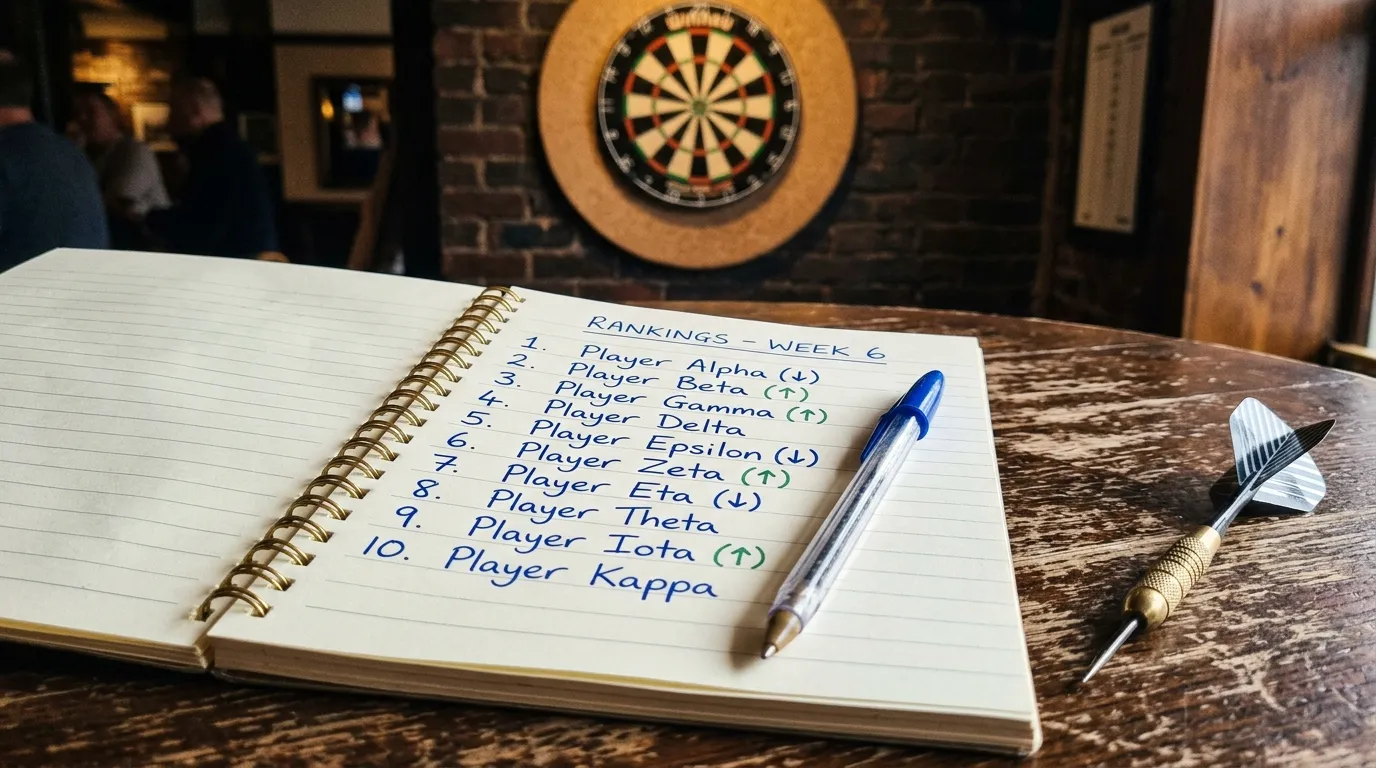 RANKINGS – WEEK 6
1. Player Alpha (↓)
2. Player Beta (↑)
3. Player Gamma (↑)
4. Player Delta
5. Player Epsilon (↓)
6. Player Zeta (↑)
7. Player Eta (↓)
8. Player Theta
9. Player Iota (↑)
10. Player Kappa